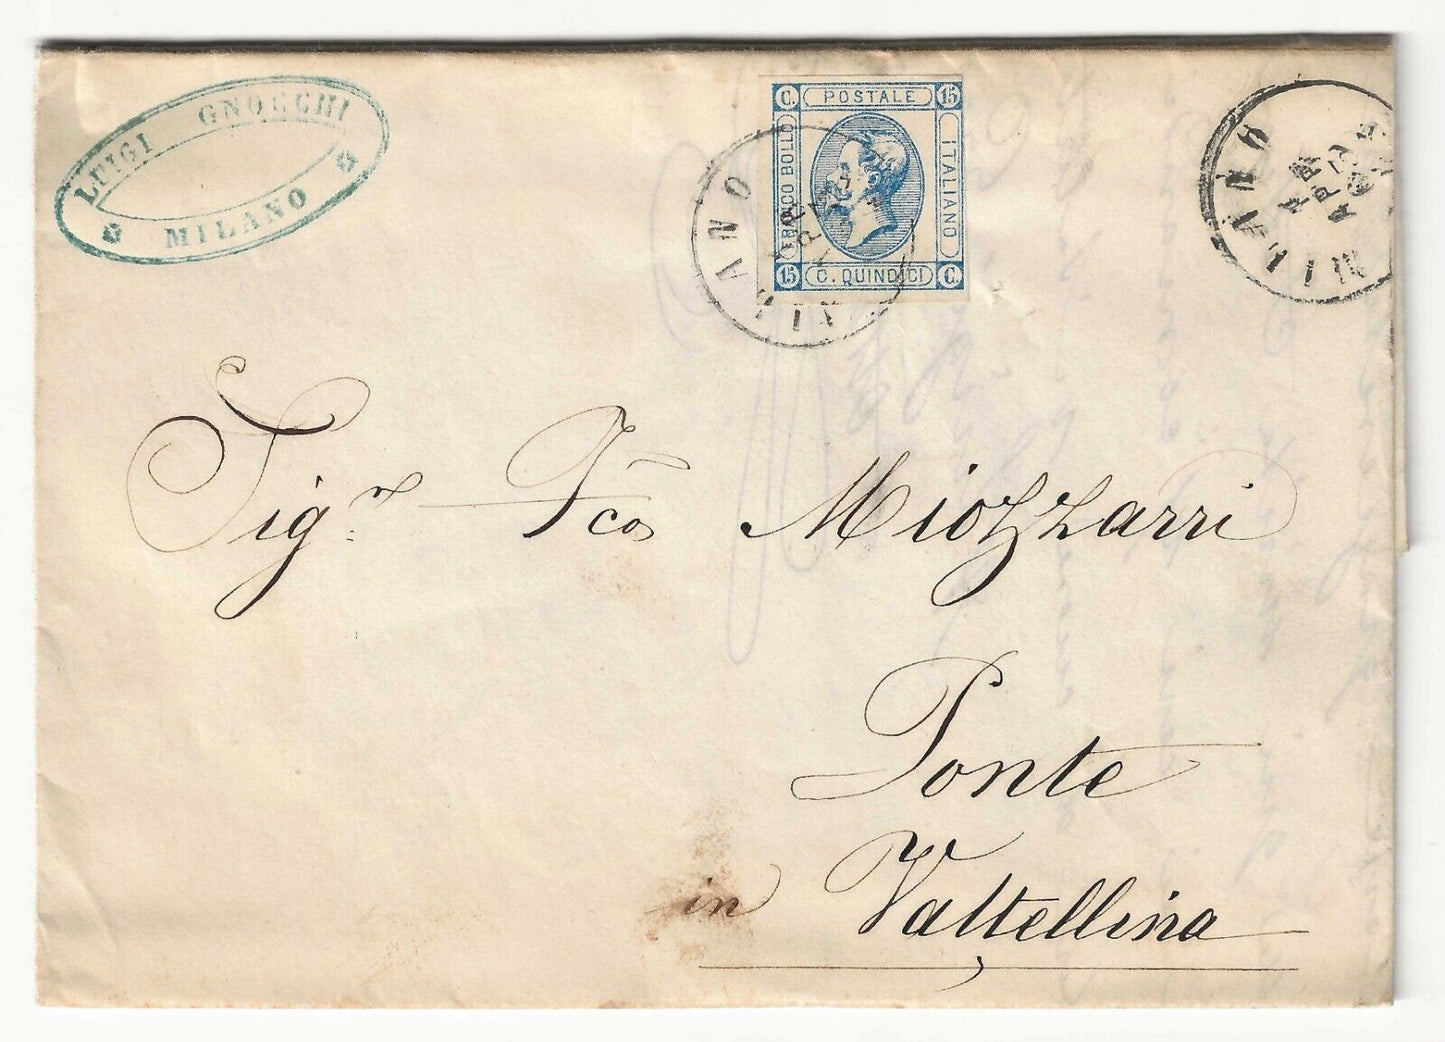 LUIGI GNOCCHI
MILANO
C. POSTALE 15
FRANCO BOLLO
ITALIANO
15 C. QUINDICI C.
MILANO
MILANO
Sigr Fcō Miozzarri
Ponte
in Valtellina